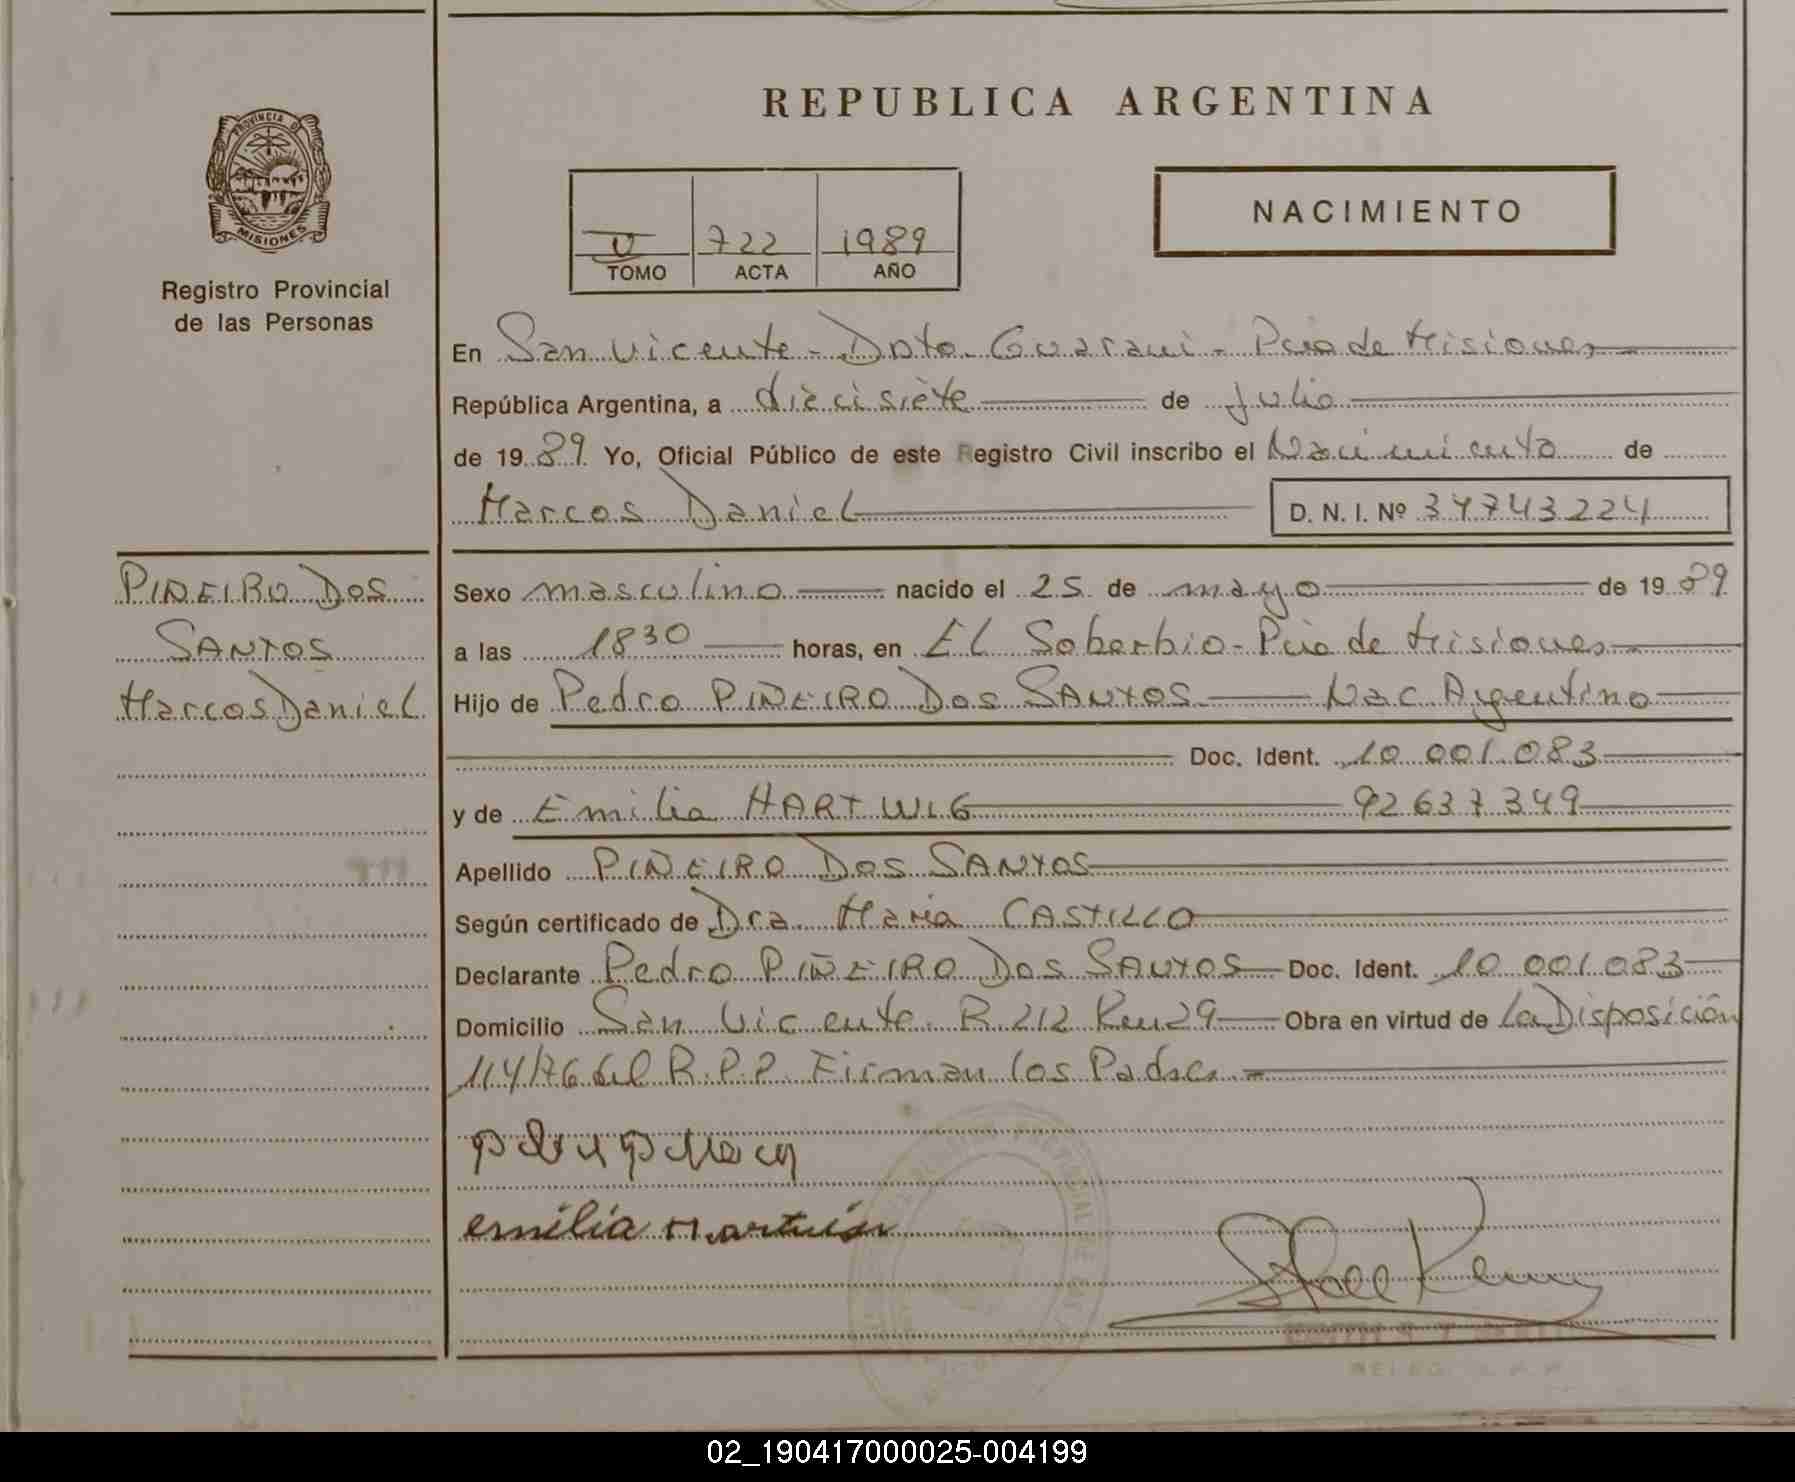 REPUBLICA ARGENTINA
PROVINCIA D
MISIONES
Registro Provincial
de las Personas
V 722 1989
TOMO ACTA AÑO
NACIMIENTO
En San Vicente - Dpto. Guarani - Pcia de Misiones
República Argentina, a diecisiete de Julio
de 1989 Yo, Oficial Público de este Registro Civil inscribo el Nacimiento de
Marcos Daniel D. N. I. Nº 34743224
PIÑEIRO DOS
SANTOS
Marcos Daniel
Sexo masculino nacido el 25 de mayo de 1989
a las 1830 horas, en EL Soberbio - Pcia de Misiones
Hijo de Pedro PIÑEIRO DOS SANTOS Nac Argentino
Doc. Ident. 10.001.083
y de Emilia HARTWIG 92637349
Apellido PIÑEIRO DOS SANTOS
Según certificado de Dra Maria CASTILLO
Declarante Pedro PIÑEIRO DOS SANTOS Doc. Ident. 10 001 083
Domicilio San Vicente. R. 212 Km 29 Obra en virtud de La Disposición
114/76 del R.P.P. Firman los Padres
emilia
02_190417000025-004199